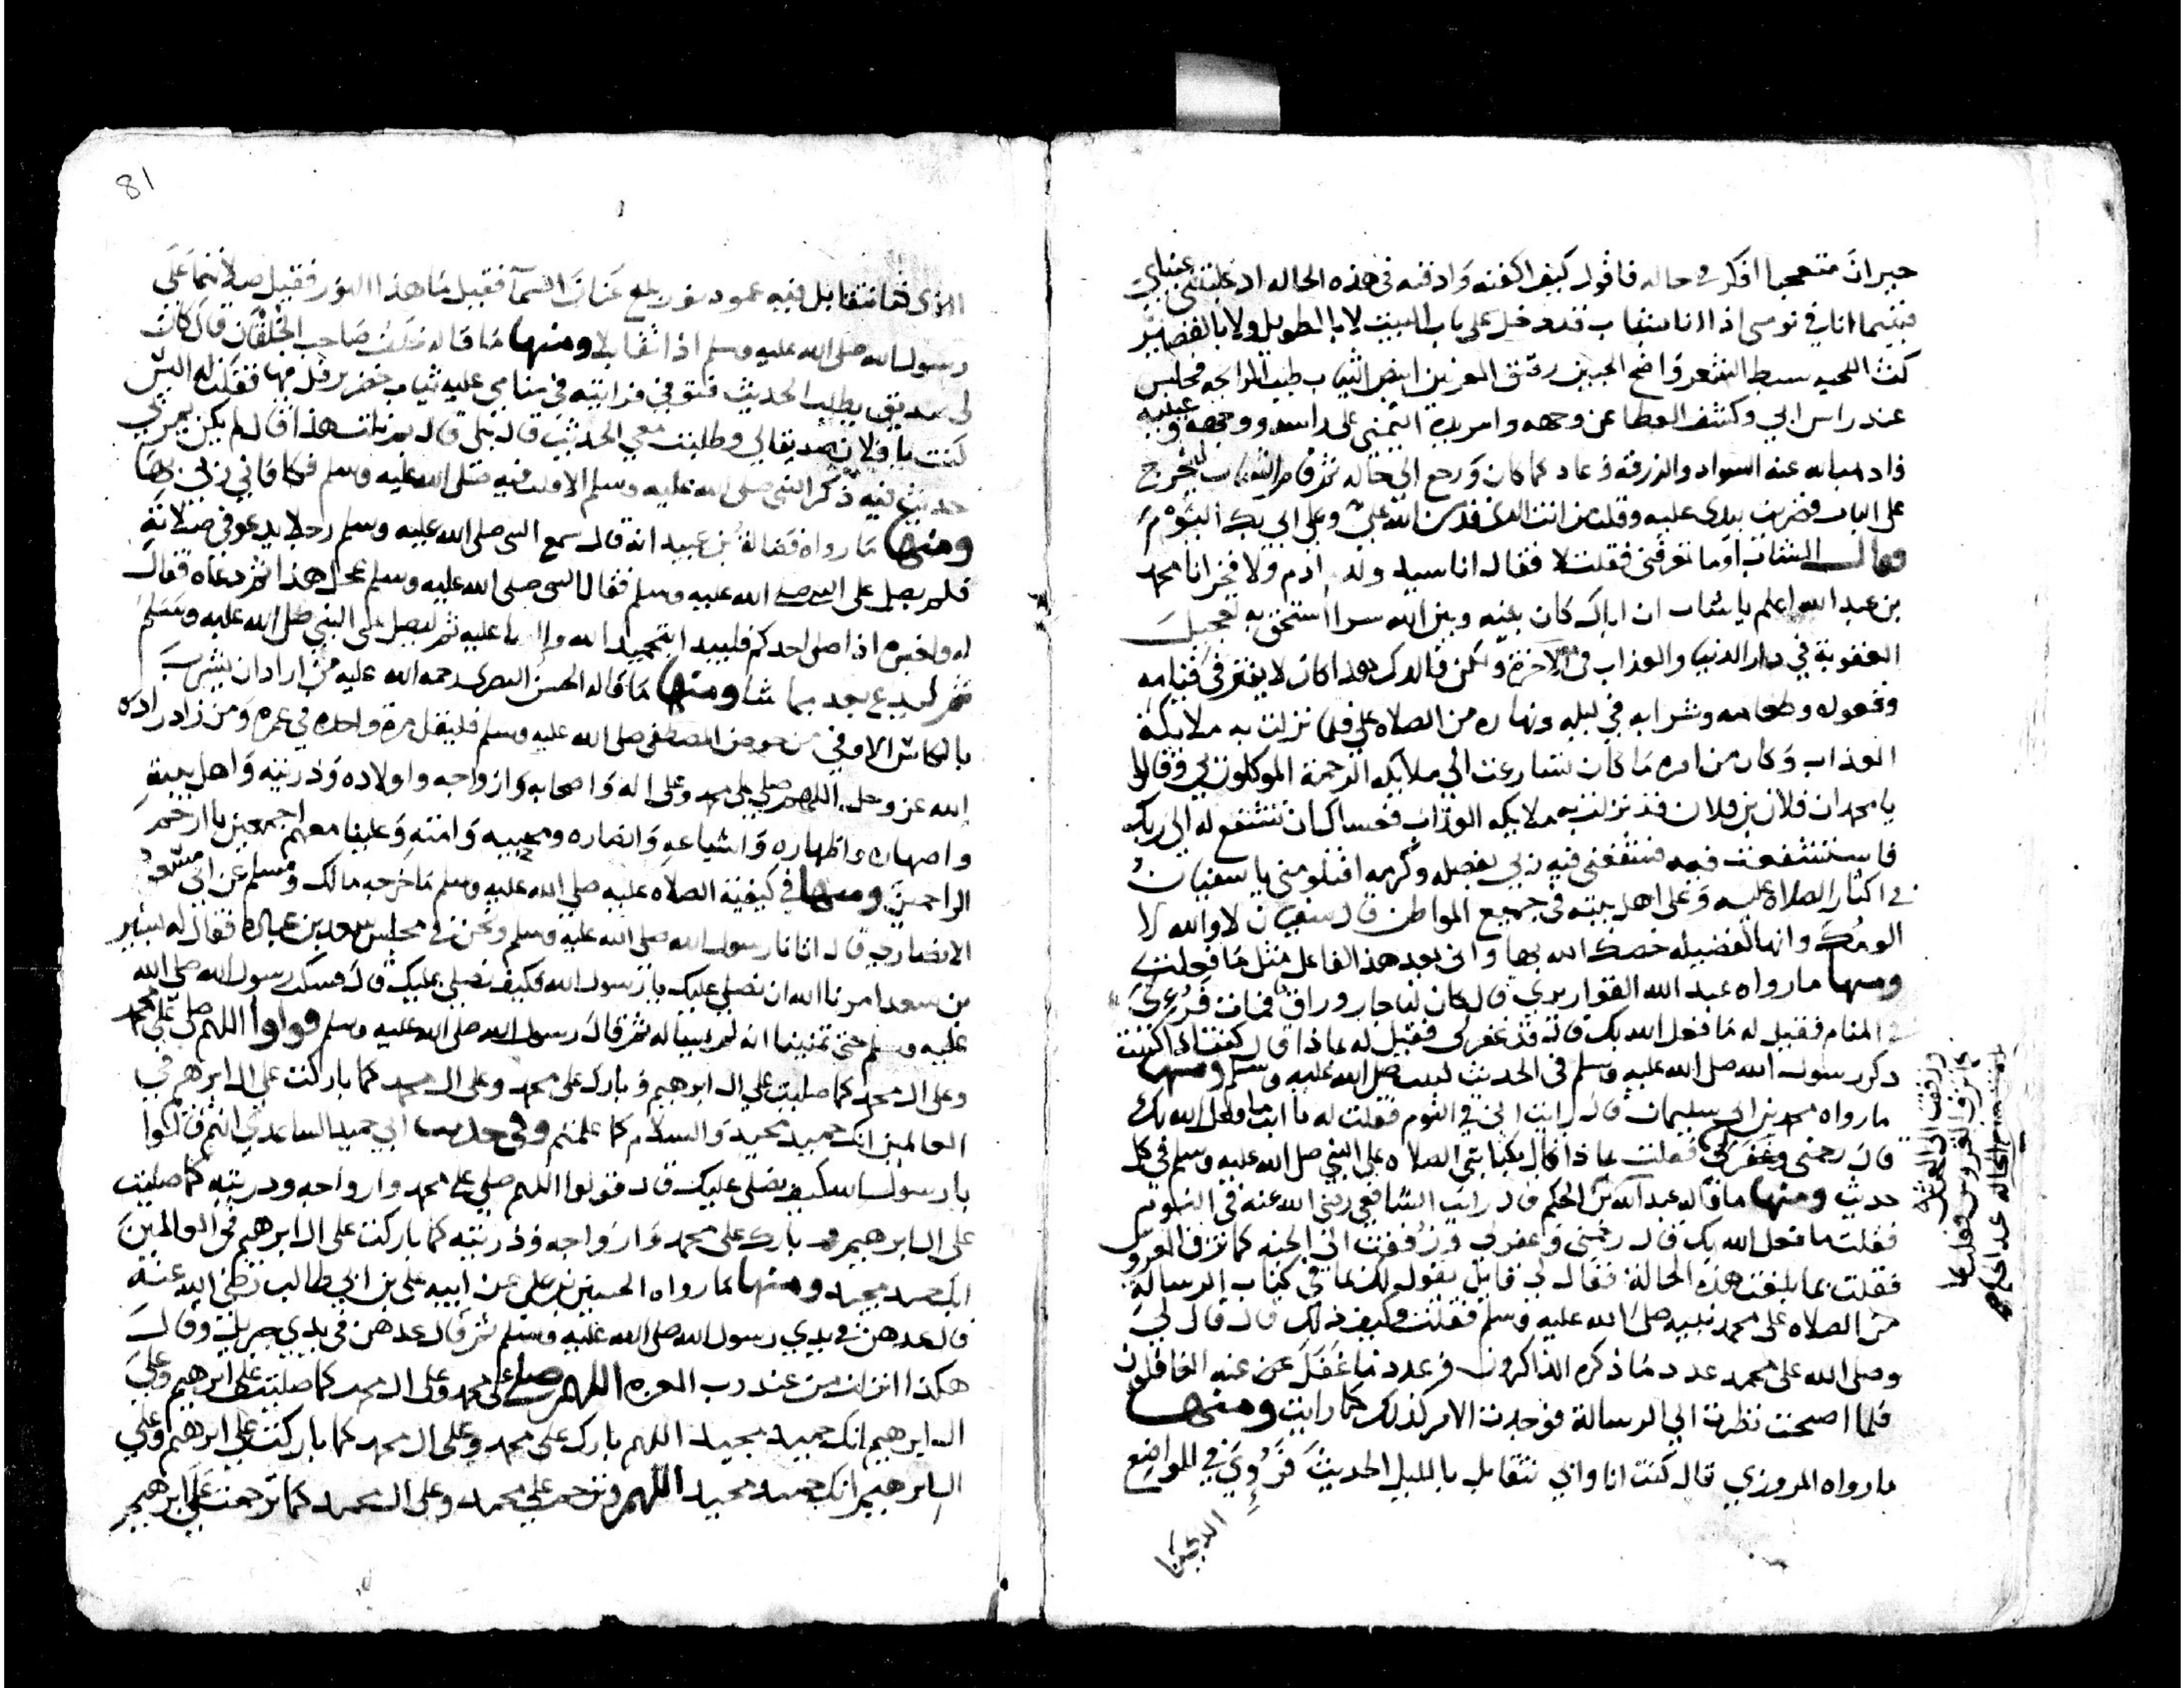 حيران متعجبا افكر في حاله فاقول كيف اكفنه وادفنه في هذه الحاله اذ غلبتني عيناي
فبينما انا في نومي اذا انا بشاب قد دخل علي باب البيت لا بالطويل ولا بالقصير
كث اللحيه سبط الشعر واضح الجبين رقيق العرنين ابيض الثياب طيب الرايحه فجلس
عند راس ابي وكشف الغطا عن وجهه وامر يده اليمني علي راسه ووجهه وعينيه
فاذهب الله عنه السواد والزرقة وعاد كما كان ورجع الي حاله ثم قام الشاب ليخرج
علي الباب فضربت بيدي عليه وقلت من انت الذي قد من الله علي وعلي ابي بك اليوم
فقال الشاب اوما تعرفني فقلت لا فقال انا سيد ولد ادم ولا فخر انا محمد
بن عبد الله اعلم يا شاب ان اباك كان بينه وبين الله سرا استحق به تعجيل
العقوبة في دار الدنيا والعذاب في الاخرة ولكن والدك هذا كان لا يفتر في قيامه
وقعوده وطعامه وشرابه في ليله ونهاره من الصلاه علي فلما نزلت به ملايكة
العذاب وكان من امره ما كان تسارعت الي ملايكة الرحمة الموكلون بي وقالوا
يا محمد ان فلان بن فلان قد نزلت به ملايكه العذاب فعساك ان تشفع له الي ربك
فاستشفعت فيه فشفعني فيه ربي بفضله وكرمه افتلومني يا سفيان
في اكثار الصلاة عليه وعلي اهل بيته في جميع المواطن قال سفيان لا والله لا
الومك وانها لفضيله خصك الله بها واني بعد هذا لفاعل مثل ما فعلت
ومنها ما رواه عبد الله القواريري قال كان لنا جار وراق فمات فرءي
في المنام فقيل له ما فعل الله بك قال قد غفر لي فقيل له بماذا قال كنت اذا كتبت
ذكر رسول الله صلي الله عليه وسلم في الحديث كتبت صلي الله عليه وسلم ومنها
ما رواه محمد بن ابي سليمان قال رايت ابي في النوم فقلت له يا ابت ما فعل الله بك
قال رحمني وغفر لي فقلت بماذا قال بكتابتي الصلاه علي النبي صلي الله عليه وسلم في كل
حديث ومنها ما قاله عبد الله بن الحكم قال رايت الشافعي رضي الله عنه في النوم
فقلت ما فعل الله بك قال رحمني وغفر لي وزففت الي الجنه كما تزف العروس
فقلت بما بلغت هذه الحالة فقال لي قايل يقول لك بما في كتاب الرسالة
من الصلاه علي محمد نبيه صلي الله عليه وسلم فقلت وكيف ذلك قال قال لي
وصلي الله علي محمد عدد ما ذكره الذاكرون وعدد ما غفل عن عنه الغافلون
فلما اصبحت نظرت الي الرسالة فوجدت الامر كذلك كما رايت ومنها
ما رواه المروزي قال كنت انا وابي نتقابل بالليل الحديث فرءي في المواضع
الذي كنا
81
الذي كنا نتقابل فيه عمود نور بلغ عنان السما فقيل ما هذا النور فقيل صلاتهما علي
رسول الله صلي الله عليه وسلم اذا تقابلا ومنها ما قاله خلف صاحب الخلقان قال كان
لي صديق يطلب الحديث فتوفي فرايته في منامي عليه ثياب خضر يرفل فيها فقلت له الست
كنت يا فلان صديقا لي وطلبت معي الحديث قال بلي قال بم نلت هذا قال لم يكن يمر بي
حديث فيه ذكر النبي صلي الله عليه وسلم الا كتبت فيه صلي الله عليه وسلم فكافاني ربي بهذا
ومنها ما رواه فضالة بن عبيد انه قال سمع النبي صلي الله عليه وسلم رجلا يدعو في صلاته
فلم يصل علي النبي صلي الله عليه وسلم فقال النبي صلي الله عليه وسلم عجل هذا ثم دعاه فقال
له ولغيره اذا صلي احدكم فليبدا بتحميد الله والثنا عليه ثم ليصل علي النبي صلي الله عليه وسلم
ثم ليدع بعد بما شا ومنها ما قاله الحسن البصري رحمه الله عليه من اراد ان يشرب
بالكاس الاوفي من حوض المصطفي صلي الله عليه وسلم فليقل مرة واحده في عمره ومن زاد زاده
الله عز وجل اللهم صلي علي محمد وعلي اله واصحابه وازواجه واولاده وذريته واهل بيته
واصهاره واظهاره واشياعه وانصاره ومحبيه وامته وعلينا معهم اجمعين يا ارحم
الراحمين ومنها في كيفية الصلاه عليه صلي الله عليه وسلم ما خرجه مالك ومسلم عن ابي مسعود
الانصاري قال اتانا رسول الله صلي الله عليه وسلم ونحن في مجلس سعد بن عباده فقال له بشير
بن سعد امرنا الله ان نصلي عليك يا رسول الله فكيف نصلي عليك قال فسكت رسول الله صلي الله
عليه وسلم حتي تمنينا انه لم يساله ثم قال رسول الله صلي الله عليه وسلم قولوا اللهم صل علي محمد
وعلي ال محمد كما صليت علي ال ابرهيم وبارك علي محمد وعلي ال محمد كما باركت علي ال ابرهيم في
العالمين انك حميد مجيد والسلام كما علمتم وفي حديث ابي حميد الساعدي انهم قالوا
يا رسول الله كيف نصلي عليك قال قولوا اللهم صلي علي محمد وازواجه وذريته كما صليت
علي ال ابرهيم وبارك علي محمد وازواجه وذريته كما باركت علي ال ابرهيم في العالمين
انك حميد مجيد ومنها ما رواه الحسين بن علي عن ابيه علي بن ابي طالب رضي الله عنه
قال عدهن في يدي رسول الله صلي الله عليه وسلم ثم قال عدهن في يدي جبريل وقال
هكذا انزلت من عند رب العزه اللهم صل علي محمد وعلي ال محمد كما صليت علي ابرهيم وعلي
ال ابرهيم انك حميد مجيد اللهم بارك علي محمد وعلي ال محمد كما باركت علي ابرهيم وعلي
ال ابرهيم انك حميد مجيد اللهم وترحم علي محمد وعلي ال محمد كما ترحمت علي ابرهيم